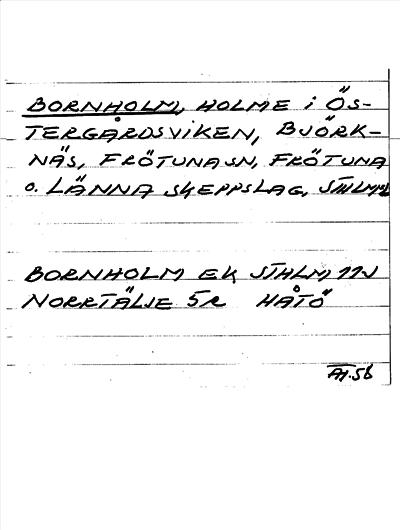 BORNHOLM, HOLME i ÖS-
TERGÅRDSVIKEN, BJÖRK-
NÄS, FRÖTUNA SN, FRÖTUNA
o. LÄNNA SKEPPSLAG, STHLMS L
BORNHOLM EK STHLM 11J
NORRTÄLJE 5R HÅTÖ